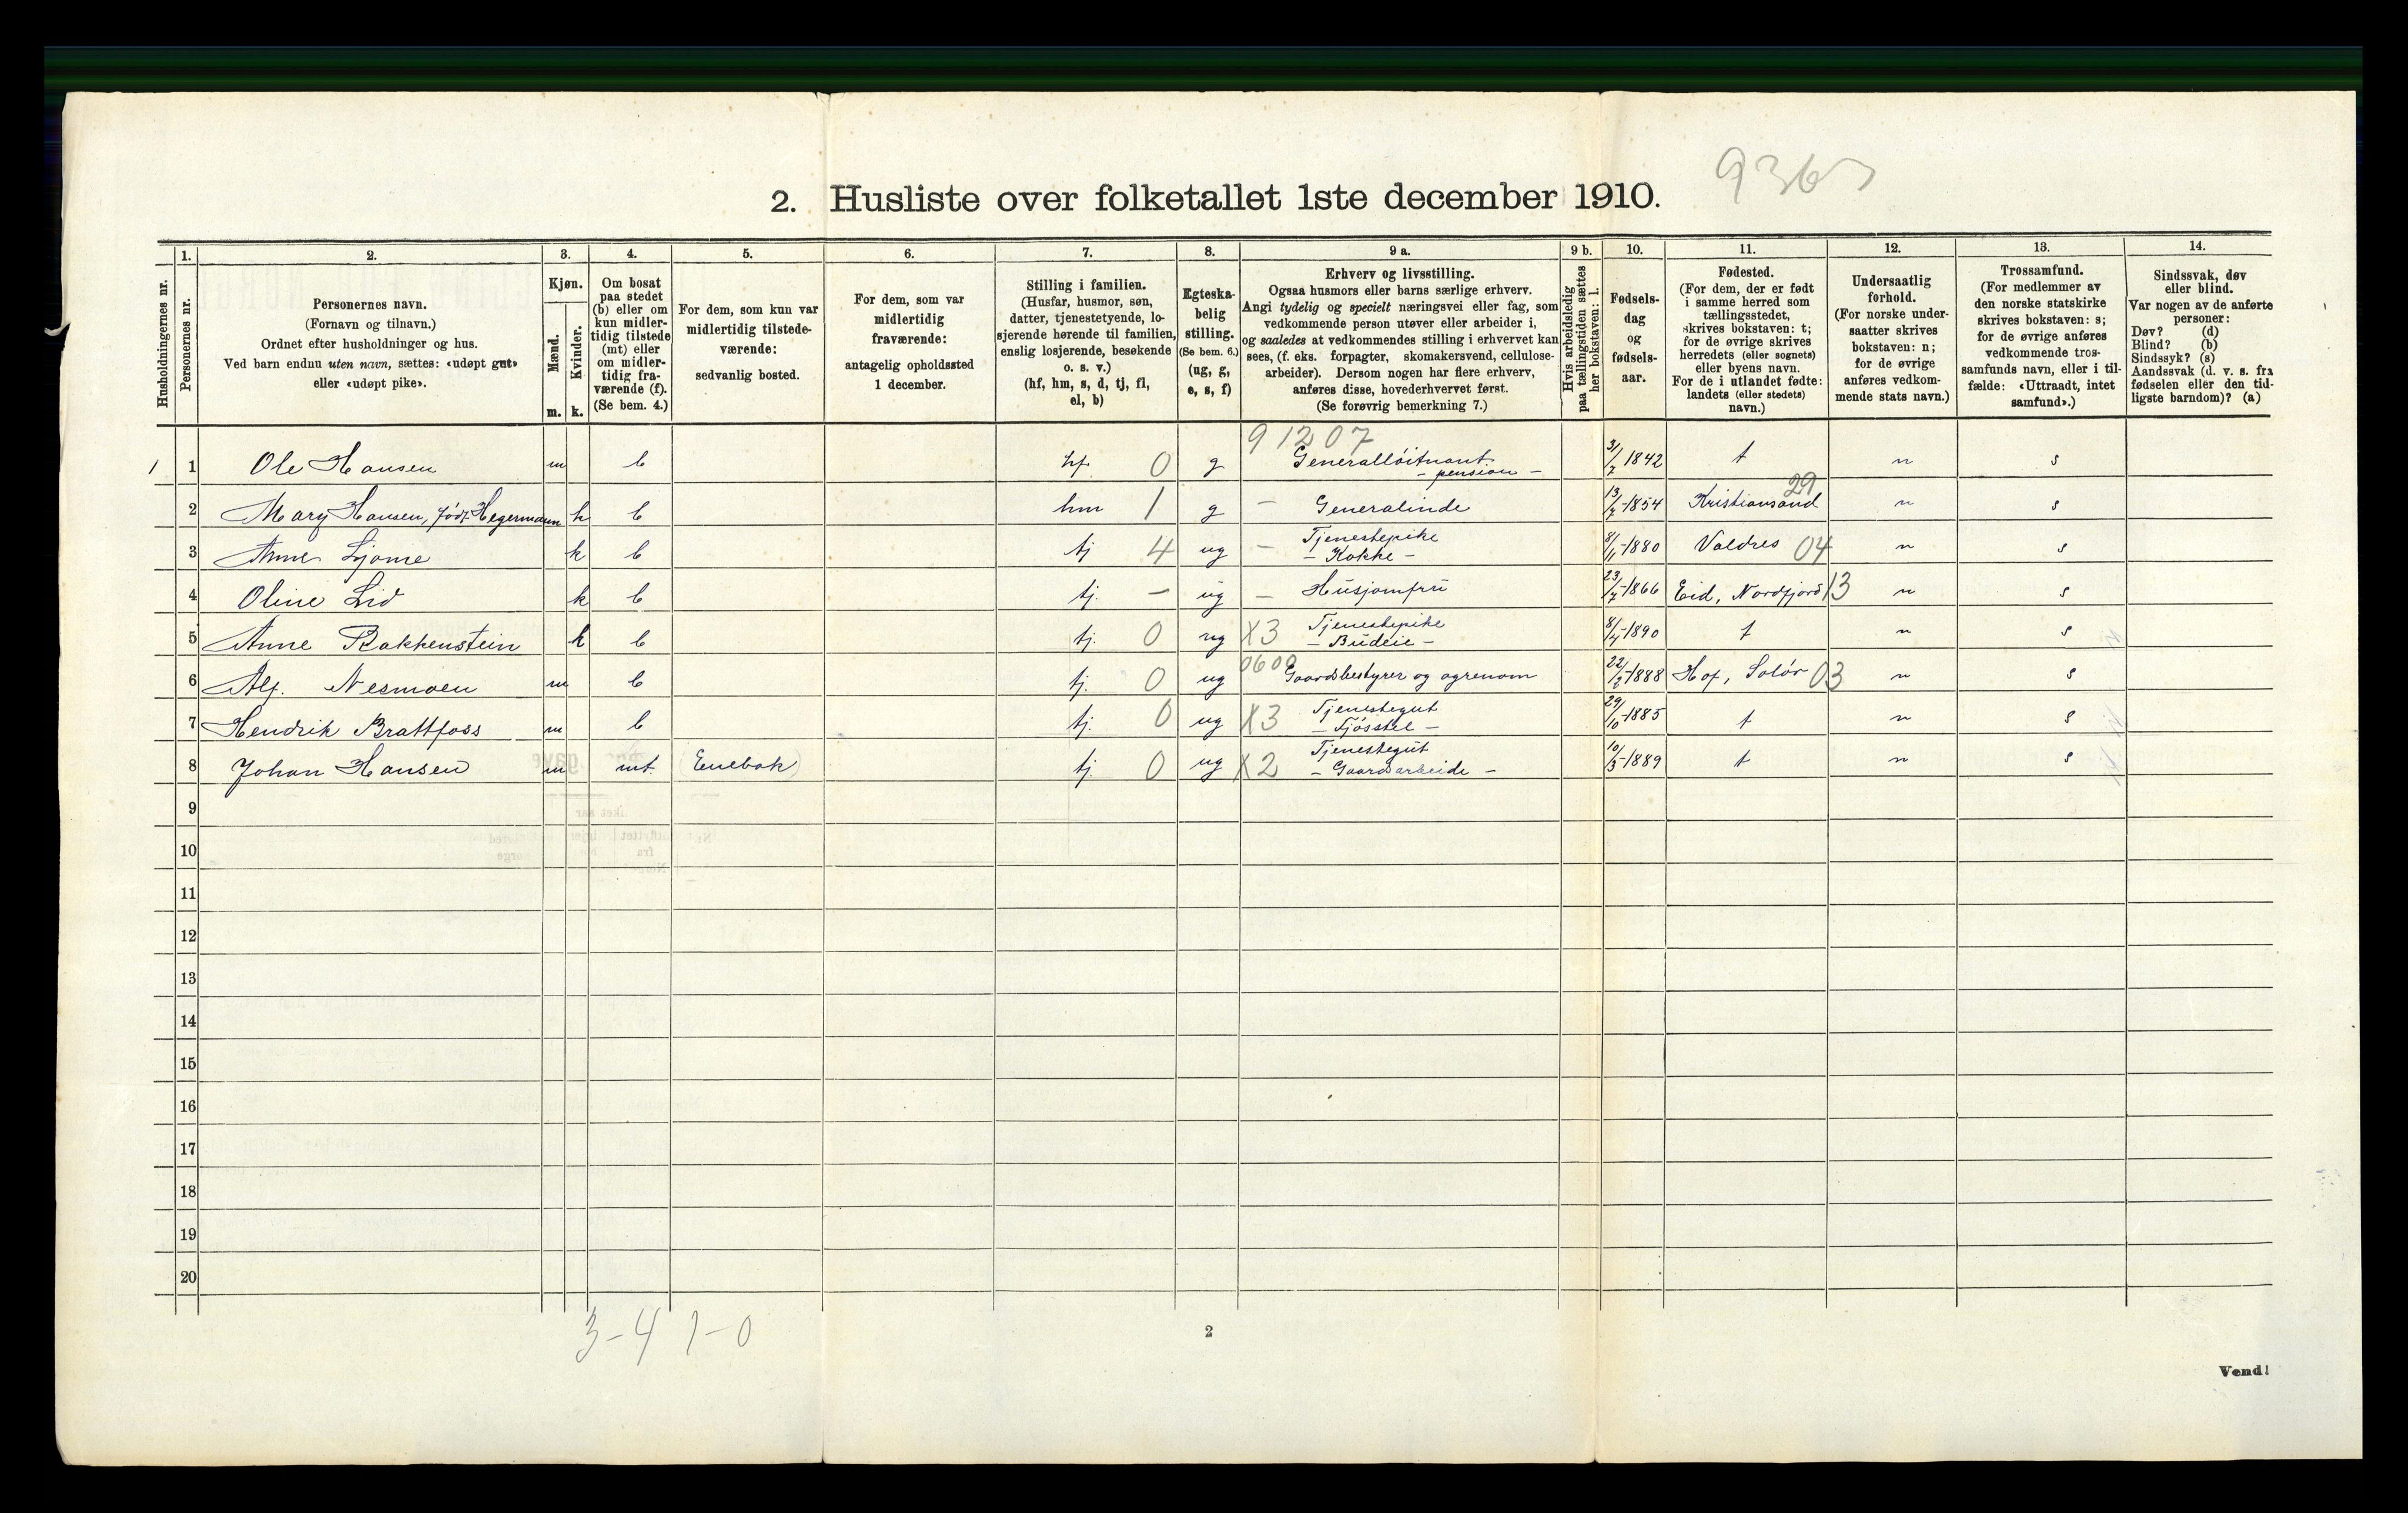 2. Husliste over folketallet 1ste december 1910.
Husholdningernes nr.
1.
Personernes nr.
2.
Personernes navn.
(Fornavn og tilnavn.)
Ordnet efter husholdninger og hus.
Ved barn endnu uten navn, sættes: «udøpt gut»
eller «udøpt pike».
3.
Kjøn.
Mænd.
Kvinder.
m. k.
4.
Om bosat
paa stedet
(b) eller om
kun midler-
tidig tilstede
(mt) eller
om midler-
tidig fra-
værende (f).
(Se bem. 4.)
5.
For dem, som kun var
midlertidig tilstede-
værende:
sedvanlig bosted.
6.
For dem, som var
midlertidig
fraværende:
antagelig opholdssted
1 december.
7.
Stilling i familien.
(Husfar, husmor, søn,
datter, tjenestetyende, lo-
sjerende hørende til familien,
enslig losjerende, besøkende
o. s. v.)
(hf, hm, s, d, tj, fl,
el, b)
8.
Egteska-
belig
stilling.
(Se bem. 6.)
(ug, g,
e, s, f)
9 a.
Erhverv og livsstilling.
Ogsaa husmors eller barns særlige erhverv.
Angi tydelig og specielt næringsvei eller fag, som
vedkommende person utøver eller arbeider i,
og saaledes at vedkommendes stilling i erhvervet kan
sees, (f. eks. forpagter, skomakersvend, cellulose-
arbeider). Dersom nogen har flere erhverv,
anføres disse, hovederhvervet først.
(Se forøvrig bemerkning 7.)
9 b.
Hvis arbeidsledig
paa tællingstiden sættes
her bokstaven: l.
10.
Fødsels-
dag
og
fødsels-
aar.
11.
Fødested.
(For dem, der er født
i samme herred som
tællingsstedet,
skrives bokstaven: t;
for de øvrige skrives
herredets (eller sognets)
eller byens navn.
For de i utlandet fødte:
landets (eller stedets)
navn.)
12.
Undersaatlig
forhold.
(For norske under-
saatter skrives
bokstaven: n;
for de øvrige
anføres vedkom-
mende stats navn.)
13.
Trossamfund.
(For medlemmer av
den norske statskirke
skrives bokstaven: s;
for de øvrige anføres
vedkommende tros-
samfunds navn, eller i til-
fælde: «Uttraadt, intet
samfund».)
14.
Sindssvak, døv
eller blind.
Var nogen av de anførte
personer:
Døv? (d)
Blind? (b)
Sindssyk? (s)
Aandssvak (d. v. s. fra
fødselen eller den tid-
ligste barndom)? (a)
91207
1 1 Ole Hansen m b hf 0 g Generalløitnant - pension - 31/7 1842 t n s
2 Mary Hansen, født Hegermann k b hm 1 g - Generalinde 13/7-1854 Kristiansand 29 n s
3 Anne Ljome k b tj 4 ug - Tjenestepike - Kokke - 8/11-1880 Valdres 04 n s
4 Oline Lid k b tj. - ug - Husjomfru 23/7-1866 Eid, Nordfjord 13 n s
5 Anne Bakkenstein k b tj. 0 ug X3 Tjenestepike - Budeie - 8/4-1890 t n s
6 Alf. Nesmoen m b tj. 0 ug 0600 Gaardsbestyrer og agrenom 22/2-1888 Hof, Solør 03 n s
7 Hendrik Brattfoss m b tj. 0 ug X3 Tjenestegut - Fjøsstel - 29/10-1885 t n s
8 Johan Hansen m mt. (Enebak) tj. 0 ug X2 Tjenestegut - Gaardsarbeide - 10/3-1889 t n s
9
10
11
12
13
14
15
16
17
18
19
20
3-4 1-0
2
Vend!